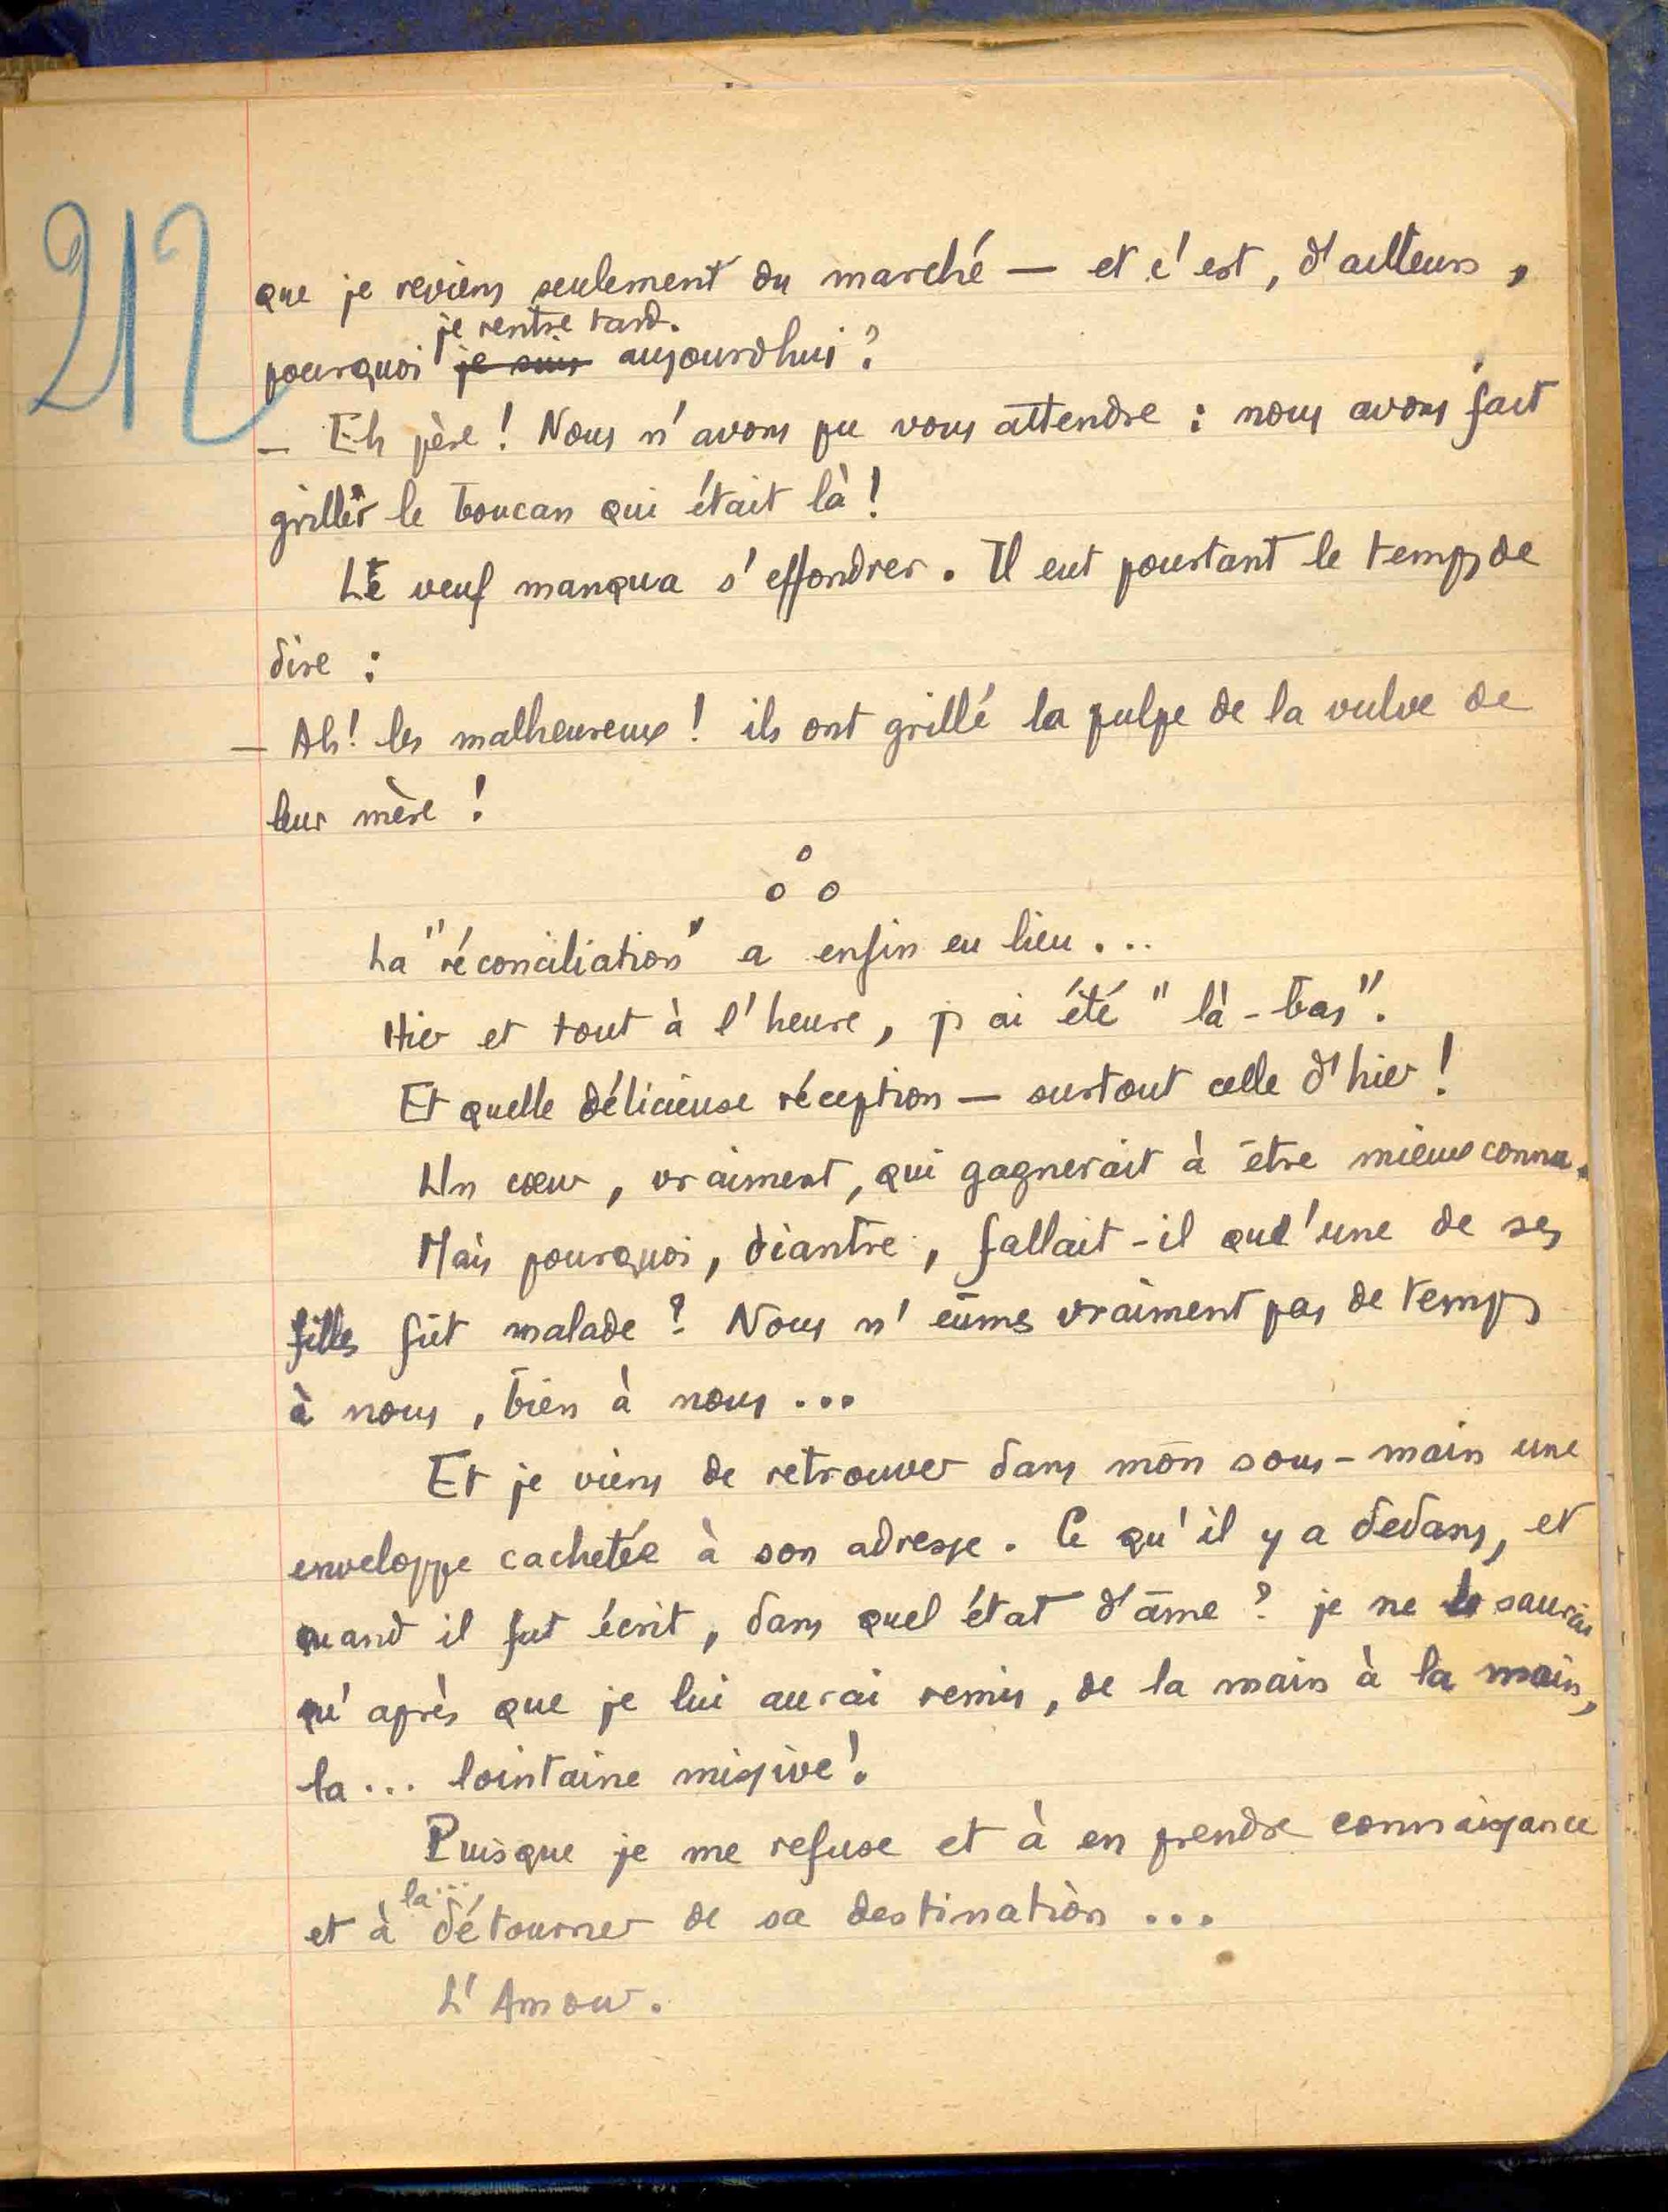 212
que je reviens seulement du marché — et c'est, d'ailleurs,
je rentre tard.
pourquoi je suis aujourd'hui ?
— Eh père ! Nous n'avons pu vous attendre : nous avons fait
griller le boucan qui était là !
Le veuf manqua s'effondrer. Il eut pourtant le temps de
dire :
— Ah ! les malheureux ! ils ont grillé la pulpe de la vulve de
leur mère !
o
o o
La "réconciliation" a enfin eu lieu...
Hier et tout à l'heure, j'ai été "là-bas".
Et quelle délicieuse réception — surtout celle d'hier !
Un cœur, vraiment, qui gagnerait à être mieux connu.
Mais pourquoi, diantre, fallait-il que l'une de ses
filles fût malade ? Nous n'eûmes vraiment pas de temps
à nous, bien à nous...
Et je viens de retrouver dans mon sous-main une
enveloppe cachetée à son adresse. Ce qu'il y a dedans, et
quand il fut écrit, dans quel état d'âme ? je ne le saurai
qu'après que je lui aurai remis, de la main à la main,
la... lointaine missive !
Puisque je me refuse et à en prendre connaissance
la...
et à détourner de sa destination...
L'Amour.